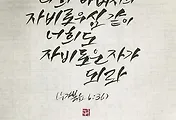 너희 아버지의
자비로우심 같이
너희도
자비로운 자가
되라
(누가복음 6:36)